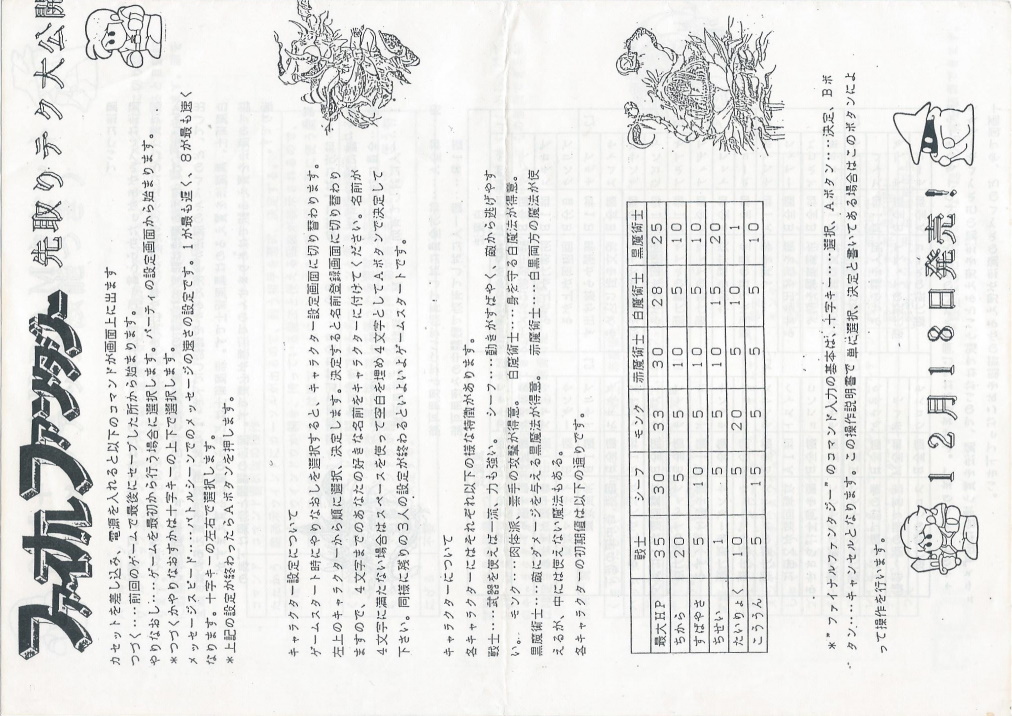 ファイナルファンタジー 先取りテク大公開
カセットを差し込み、電源を入れると以下のコマンドが画面上に出ます
つづく‥‥前回のゲームで最後にセーブした所から始まります。
やりなおし‥‥ゲームを最初から行う場合に選択します。パーティの設定画面から始まります。
*つづくかやりなおすかは十字キーの上下で選択します。
メッセージスピード‥‥バトルシーンでのメッセージの速さの設定です。1が最も遅く、8が最も速く
なります。十字キーの左右で選択します。
*上記の設定が終わったらAボタンを押します。
キャラクター設定について
ゲームスタート時にやりなおしを選択すると、キャラクター設定画面に切り替わります。
左上のキャラクターから順に選択、決定します。決定すると名前登録画面に切り替わり
ますので、4文字までのあなたの好きな名前をキャラクターに付けてください。名前が
4文字に満たない場合はスペースを使って空白を埋め4文字としてAボタンで決定して
下さい。同様に残りの3人の設定が終わるといよいよゲームスタートです。
キャラクターについて
各キャラクターにはそれぞれ以下の様な特徴があります。
戦士‥‥武器を使えば一流、力も強い。 シーフ‥‥動きがすばやく、敵から逃げやす
い。 モンク‥‥肉体派、素手の攻撃が得意。 白魔術士‥‥身を守る白魔法が得意。
黒魔術士‥‥敵にダメージを与える黒魔法が得意。 赤魔術士‥‥白黒両方の魔法が使
えるが、中には使えない魔法もある。
各キャラクターの初期値は以下の通りです。
戦士 シーフ モンク 赤魔術士 白魔術士 黒魔術士
最大HP 35 30 33 30 28 25
ちから 20 5 5 10 5 10
すばやさ 5 10 5 10 5 10
ちせい 1 5 5 10 15 20
たいりょく 10 5 20 5 10 1
こううん 5 15 5 5 5 10
*"ファイナルファンタジー"のコマンド入力の基本は、十字キー‥‥選択、Aボタン‥‥決定、Bボ
タン‥‥キャンセルとなります。この操作説明書で単に選択、決定と書いてある場合はこのボタンによ
って操作を行います。
12月18日発売!